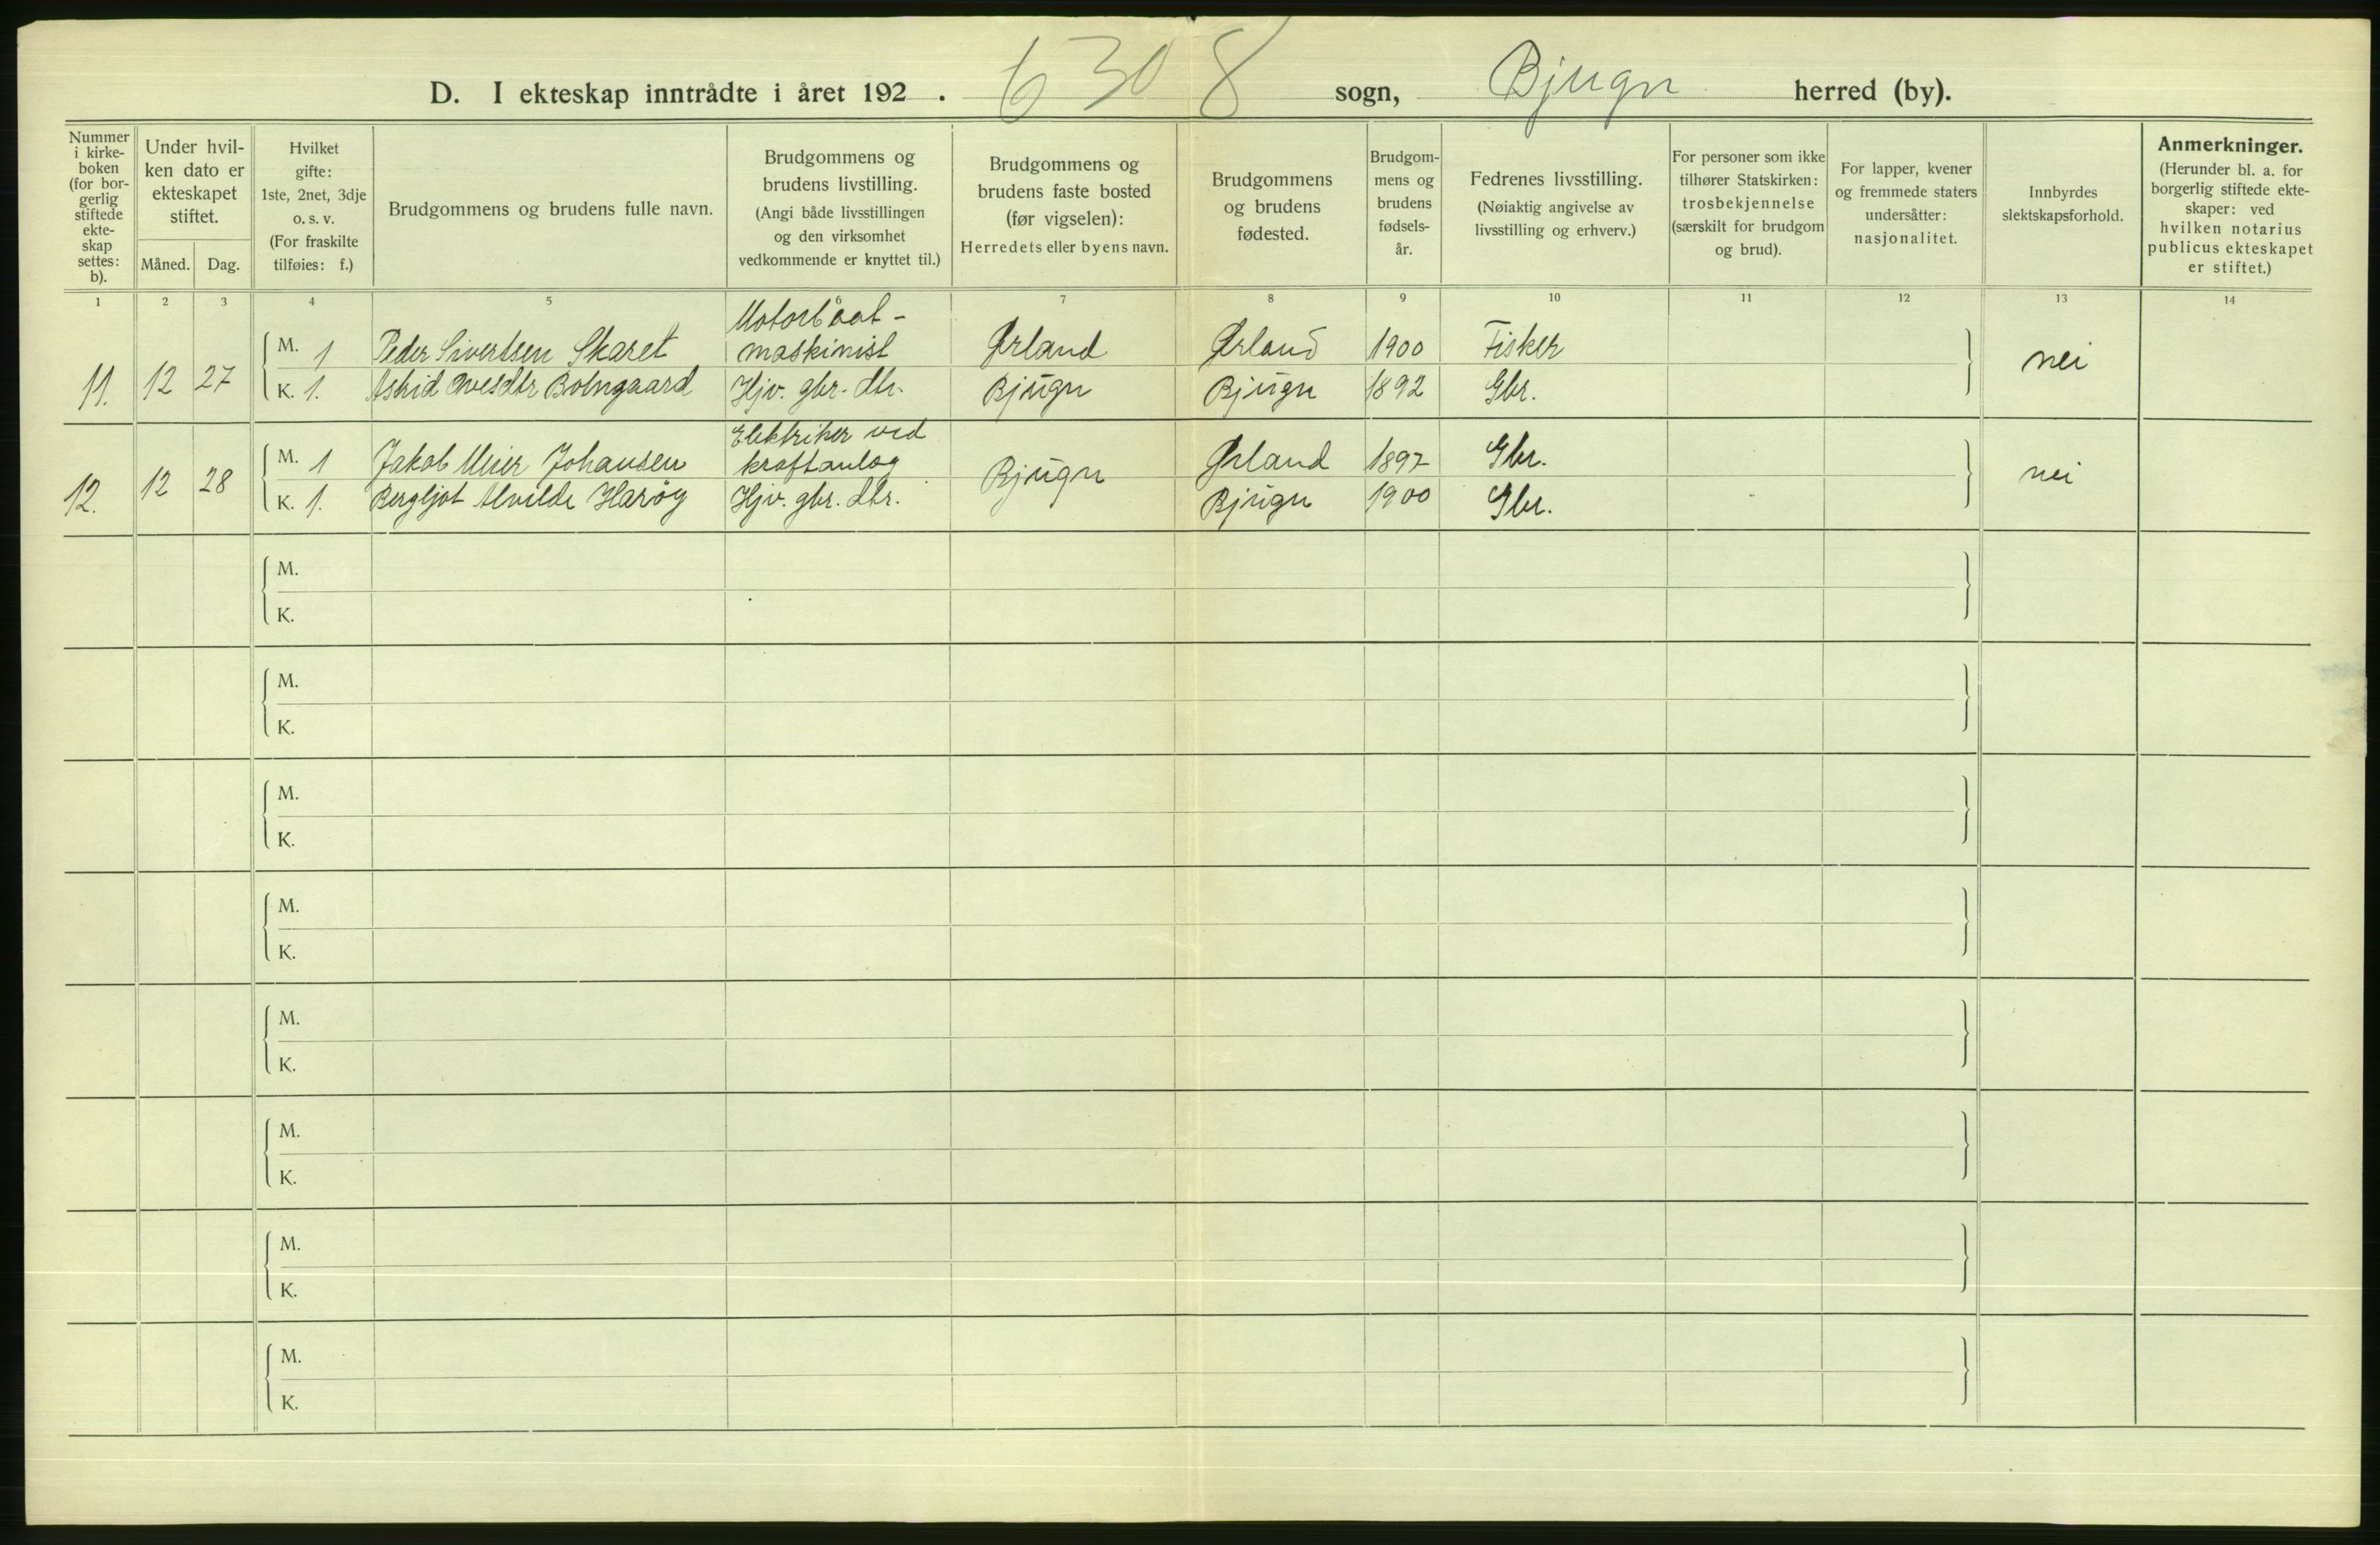 D. I ekteskap inntrådte i året 192 . 6308 sogn, Bjugn herred (by).
Nummer
i kirke-
boken
(for bor-
gerlig
stiftede
ekte-
skap
settes:
b).
Under hvil-
ken dato er
ekteskapet
stiftet.
Måned. Dag.
Hvilket
gifte:
1ste, 2net, 3dje
o. s. v.
(For fraskilte
tilføies: f.)
Brudgommens og brudens fulle navn.
Brudgommens og
brudens livstilling.
(Angi både livsstillingen
og den virksomhet
vedkommende er knyttet til.)
Brudgommens og
brudens faste bosted
(før vigselen):
Herredets eller byens navn.
Brudgommens
og brudens
fødested.
Brudgom-
mens og
brudens
fødsels-
år.
Fedrenes livsstilling.
(Nøiaktig angivelse av
livsstilling og erhverv.)
For personer som ikke
tilhører Statskirken:
trosbekjennelse
(særskilt for brudgom
og brud).
For lapper, kvener
og fremmede staters
undersåtter:
nasjonalitet.
Innbyrdes
slektskapsforhold.
Anmerkninger.
(Herunder bl. a. for
borgerlig stiftede ekte-
skaper: ved
hvilken notarius
publicus ekteskapet
er stiftet.)
1 2 3 4 5 6 7 8 9 10 11 12 13 14
Motorbåat-
M. 1 Peder Sivertsen Skaret maskinist Ørland Ørland 1900 Fisker
11. 12 27 nei
K. 1. Astrid Ovesdtr Botngaard Hjv. gbr. dtr. Bjugn Bjugn 1892 Gbr.
Elektriker ved
M. 1 Jakob Meier Johansen kraftanlæg Ørland 1897 Gbr.
12. 12 28 Bjugn nei
K. 1. Bergljot Alvilde Harøy Hjv. gbr. dtr. Bjugn 1900 Gbr.
M.
K.
M.
K.
M.
K.
M.
K.
M.
K.
M.
K.
M.
K.
M.
K.